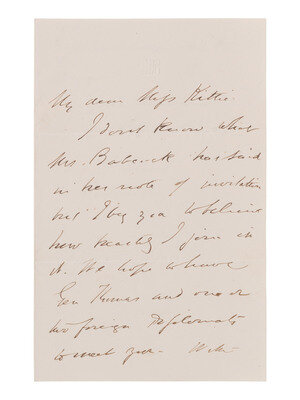 My dear Miss Kittie.
I don't know what
Mrs. Babcock has said
in her note of invitation
but I beg you to believe
how heartily I join in
it. We hope to have
Gen Thomas and one or
two foreign Diplomats
to meet you.